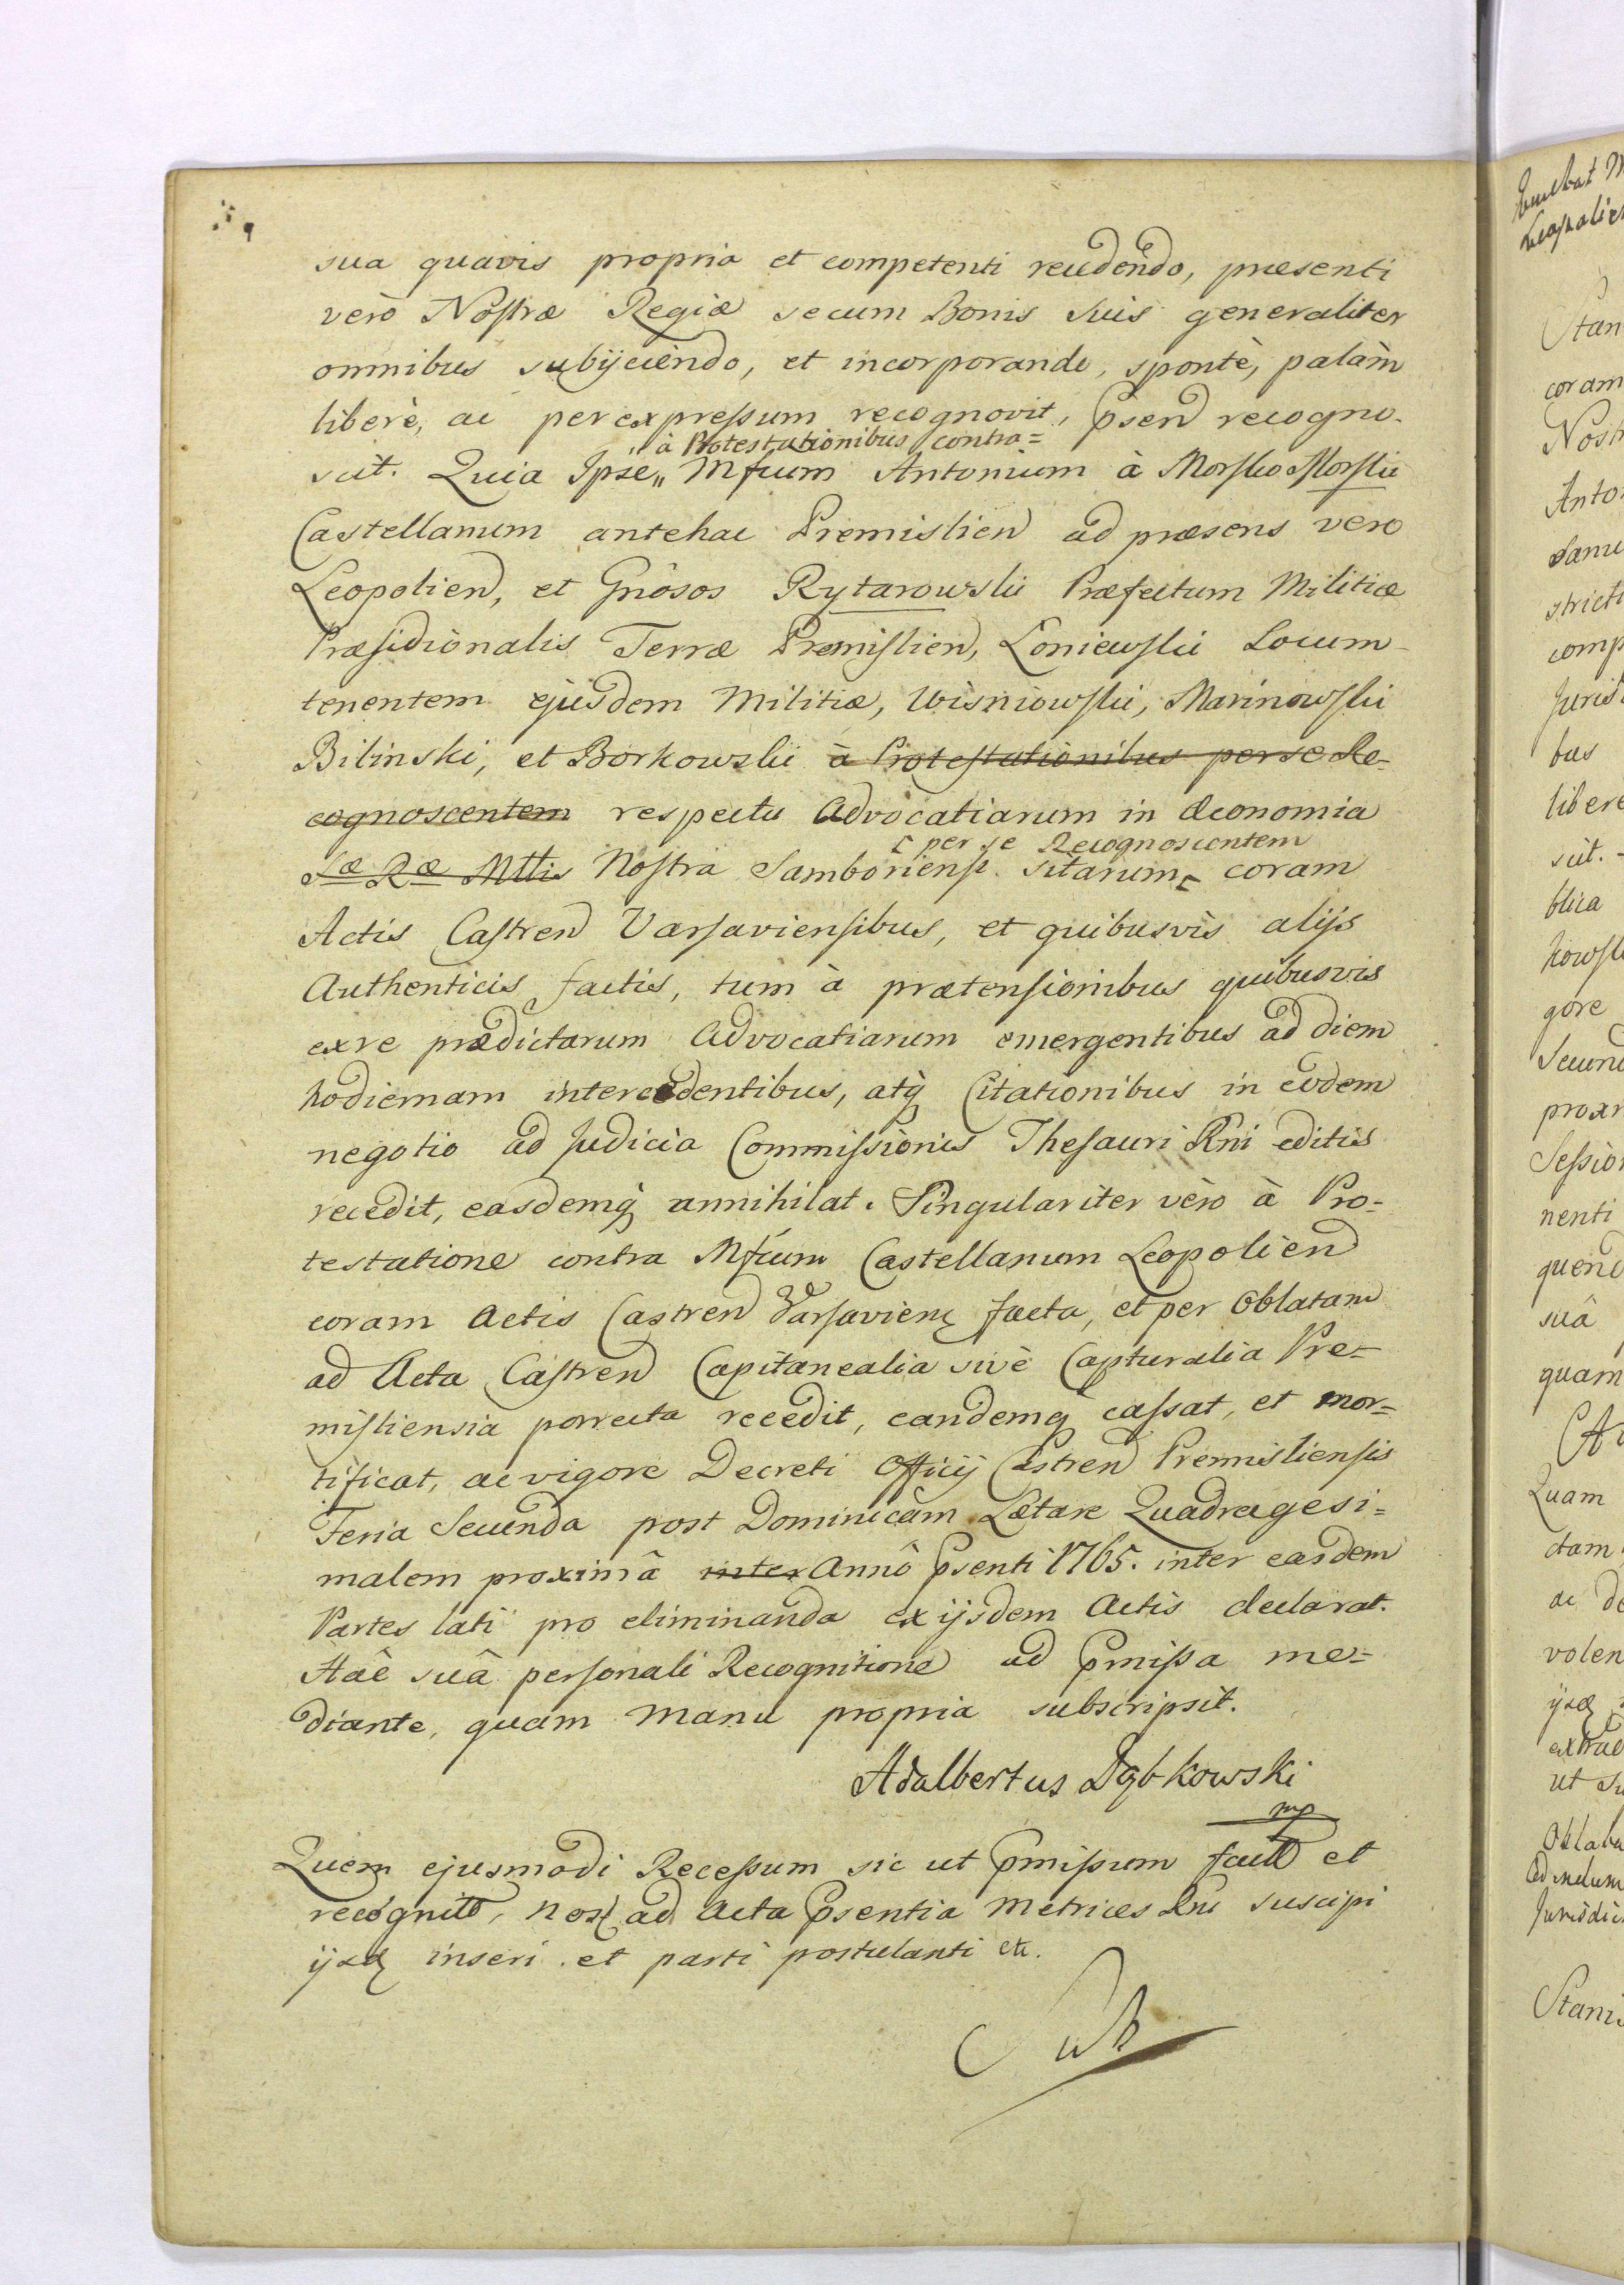 sua quavis propria et competenti recedendo, præsenti
verò Nostræ Regiæ secum Bonis suis generaliter
omnibus subijciendo, et incorporando, spontè, palàm
liberè, ac per expressum recognovit, Psend recogno-
scit. Quia Ipse„ Mfcum Antonium à Morsko Morski
„à Protestationibus contra=
Castellanum antehac Premislien ad præsens vero
Leopolien, et Gnôsos Rytarowski Præfectum Militiæ
Præsidionalis Terræ Premislien, Loniewski Locum-
tenentem ejusdem Militiæ, Wisniowski, Marinowski
Bilinski, et Borkowski à Protestationibus per se Re-
cognoscentem respectu Advocatiarum in Œconomia
per se Recognoscentem
Sæ Ræ Mttis Nostra Samboriensi sitarum coram
Actis Castren Varsaviensibus, et quibusvis alijs
Authenticis factis, tum à prætensionibus quibusvis
ex re prædictarum Advocatiarum emergentibus ad diem
hodiernam intercedentibus, atq Citationibus in eodem
negotio ad Judicia Commissionis Thesauri Rni editis
recedit, easdemq annihilat. Singulariter vèro à Pro=
testatione contra Mfcum Castellanum Leopolien
coram Actis Castren Varsavien facta, et per Oblatam
ad Acta Castren Capitanealia sivè Capturalia Pre=
misliensia porrecta recedit, eandemq cassat, et mor=
tificat, ac vigore Decreti Officij Castren Premisliensis
Feria Secunda post Dominicam Lætare Quadragesi=
malem proximâ inter Annô Psenti 1765. inter easdem
Partes lati pro eliminanda ex ijsdem Actis declarat.
Hac suâ personali Recognitione ad Pmissa me=
diante, quam manu propria subscripsit.
Adalbertus Dąbkowski
mp
Quem ejusmodi Recessum sic ut Pmissum fact et
recognit, nos ad Acta Psentia Metrices Rni suscipi
ijsq inseri et parti postulanti etc.